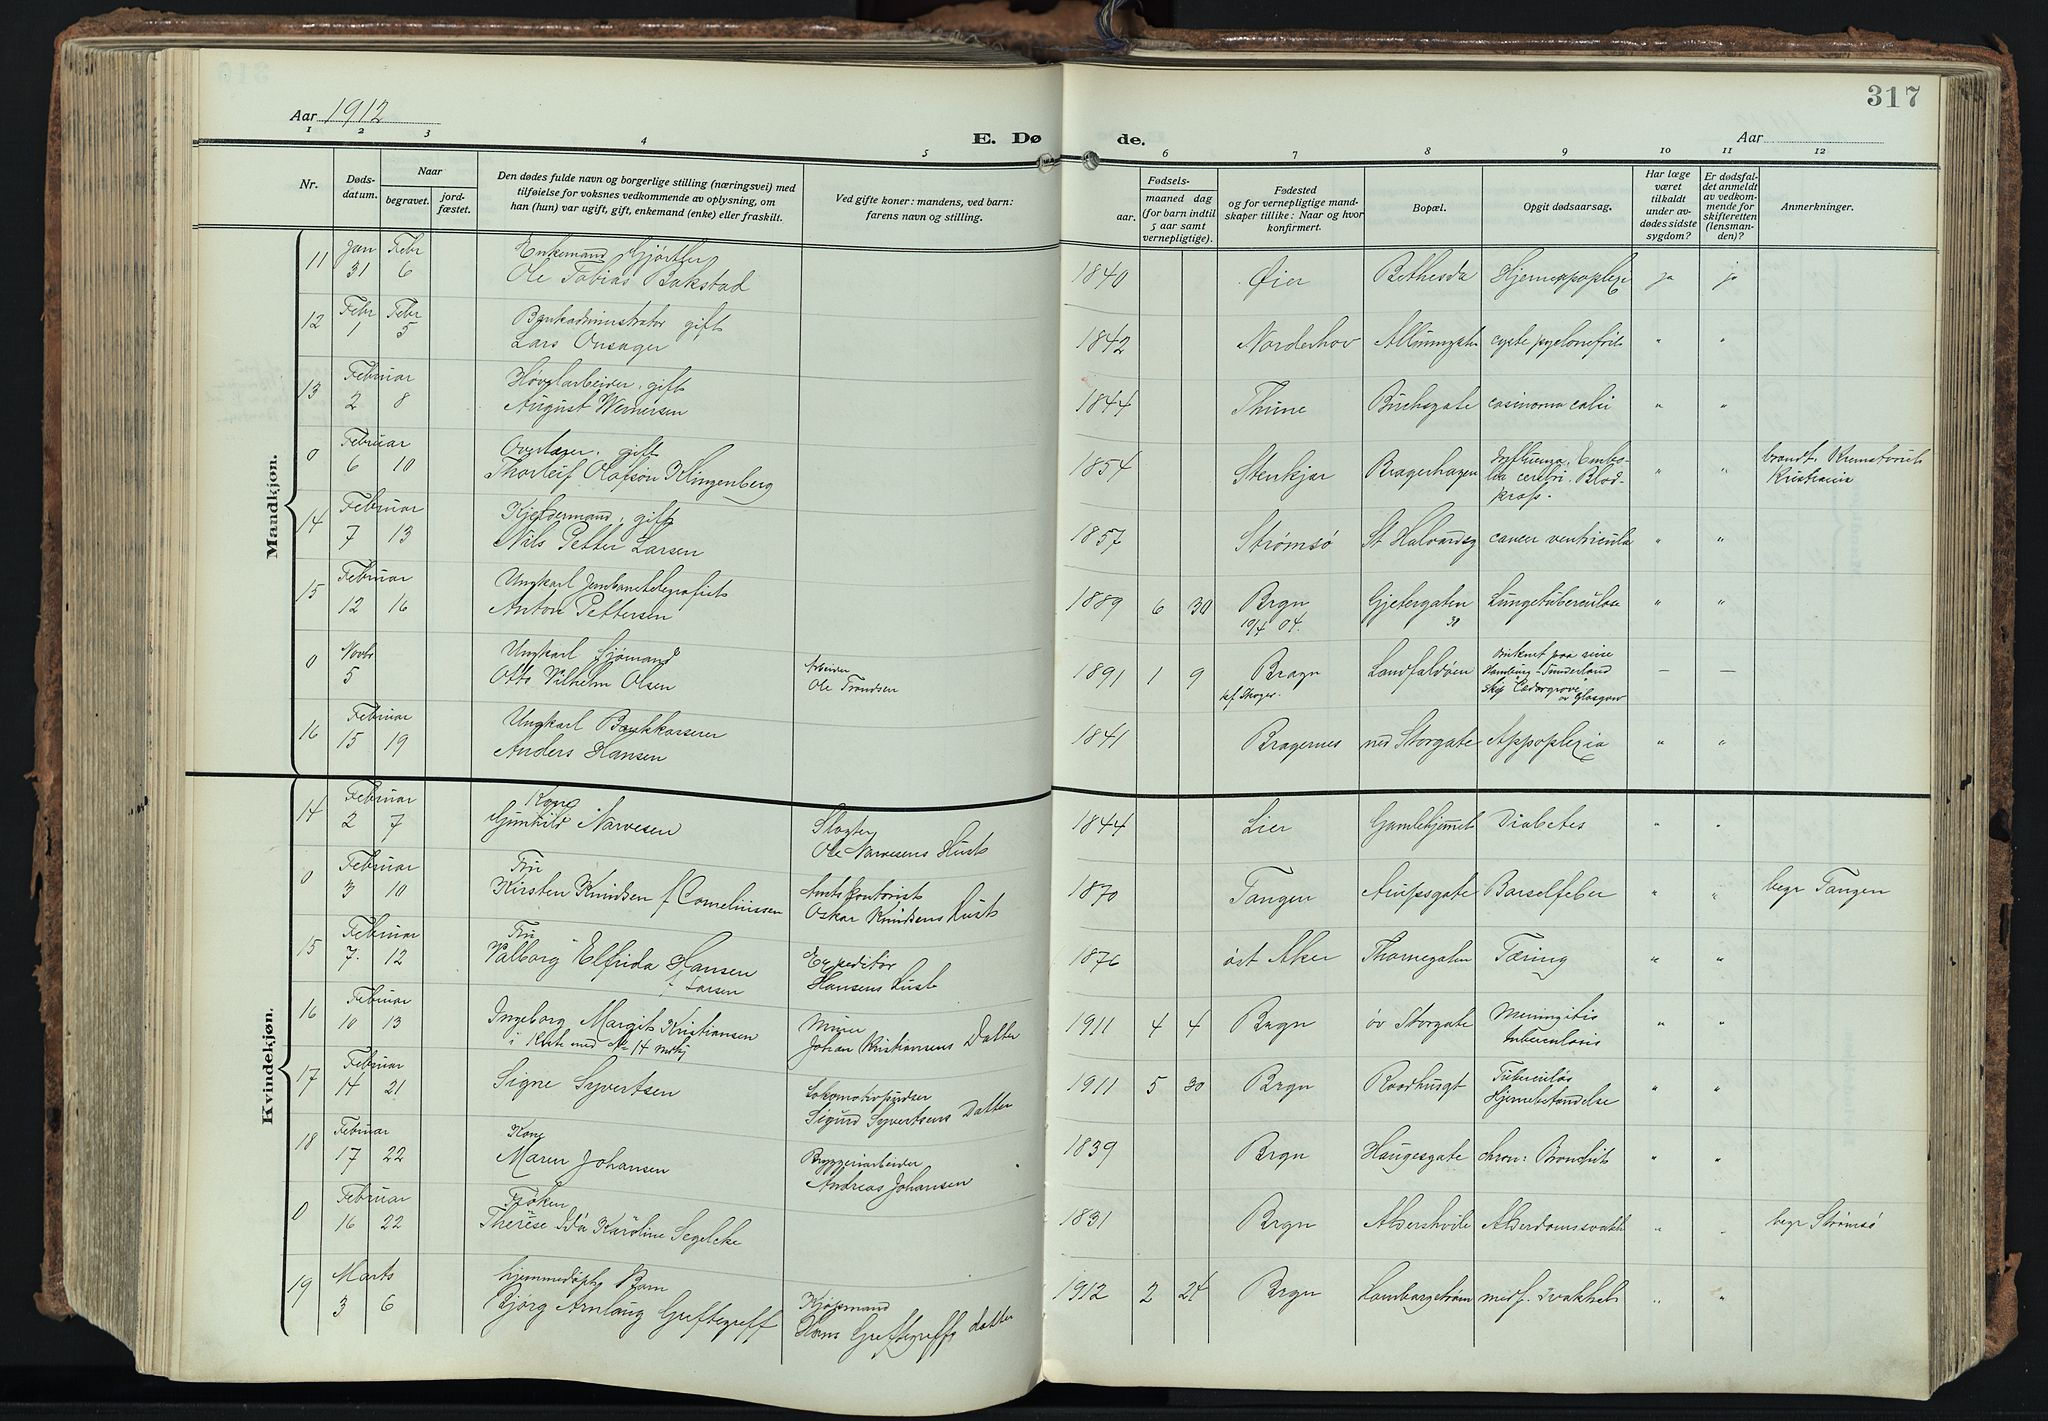 317
Aar 1912
E. Døde.
Aar
1 2 3 4 5 6 7 8 9 10 11 12
Nr.
Døds-
datum.
Naar
begravet.
jord-
fæstet.
Den dødes fulde navn og borgerlige stilling (næringsvei) med
tilføielse for voksnes vedkommende av oplysning, om
han (hun) var ugift, gift, enkemand (enke) eller fraskilt.
Ved gifte koner: mandens, ved barn:
farens navn og stilling.
Fødsels-
aar. maaned dag
(for barn indtil
5 aar samt
vernepligtige).
Fødested
og for vernepligtige mand-
skaper tillike: Naar og hvor
konfirmert.
Bopæl.
Opgit dødsaarsag.
Har læge
været
tilkaldt
under av-
dødes sidste
sygdom?
Er dødsfal-
det anmeldt
av vedkom-
mende for
skifteretten
(lensman-
den)?
Anmerkninger.
Mandkjøn.
11 Jan Febr Enkemand Gjørtler
31 6 Ole Tobias Bakstad 1840 Øier Bethesda Hjerneappoplexi ja ja
12 Febr Febr Bankadministrator gift
1 5 Lars Onsager 1842 Norderhov cyste pyelonefrit " "
13 Februar Høvlarbeider. gift
2 8 August Wernersen 1844 Thune Buchsgate " "
0 Februar Overlærer. gift
6 10 Thorleif Olafson Klingenberg 1854 Stenkjær Bragerhagen Influensa. Embo-
lia cerebri. Blod-
" " brændt. Krematoriet
Kristiania
14 Februar gift
7 13 Nils Petter Larsen 1857 Strømsø St Halvardsg cancer ventricula " "
15 Februar Ungkarl Jernbanetelegrafist
12 16 Anton Pettersen 1889 6 30 Brgn Gjetergaten Lungetuberculose " "
04. 38
0 Novbr Ungkarl Sjømand
5 Otto Vilhelm Olsen Arbeider
Ole Trondsen 1891 1 9 Bragn Landfaldøen Druknet paa reise
Hamburg - Sunderland
Skip "Cedargrove"
av Glasgow — —
16 Februar Ungkarl Bankkasserer
15 19 Anders Hansen 1841 Bragernes ned Storgate Appoplexia " "
Kvindekjøn.
14 Februar Kone
2 7 Gunhild Narvesen Slagter
Ole Narvesens Hust 1844 Lier Gamlehjemmet Diabetes " "
0 Februar Fru
3 10 Kirsten Knudsen f Corneliussen Amtskontorist
Oskar Knudsens Hust 1870 Tangen Arupsgate Barselfeber " " begr Tangen
15 Februar Fru
7 12 Valborg Elfrida Hansen
f Larsen Expeditør
Hansens Hust 1876 øst Aker Thornegaten Tæring " "
16 Februar
10 13 Ingeborg Margit Kristiansen
i Kiste med No 14 Mdkj Murer
Johan Kristiansens Datter 1911 4 4 Brgn øv Storgate Meningitis
tuberculosis " "
17 Februar
14 21 Signe Syvertsen Lokomotivpudser
Sigurd Syvertsens Datter 1911 5 30 Brgn Raadhusgt Tuberculøs
Hjernebetændelse " "
18 Februar Kone
17 22 Maren Johansen Bryggeriarbeider
Andreas Johansen 1839 Brgn Haugesgate chron: Bronchit " "
0 Februar Frøken
16 22 Therese Ida Karoline Segelcke 1831 Brgn Aldershvile Alderdomssvakh " " begr Strømsø
19 Marts hjemmedøpt Barn
3 6 Bjørg Arnlaug Greftegreff Kjøpmand
Hans Greftegreffs datter 1912 2 24 Brgn medf. svakhet " "